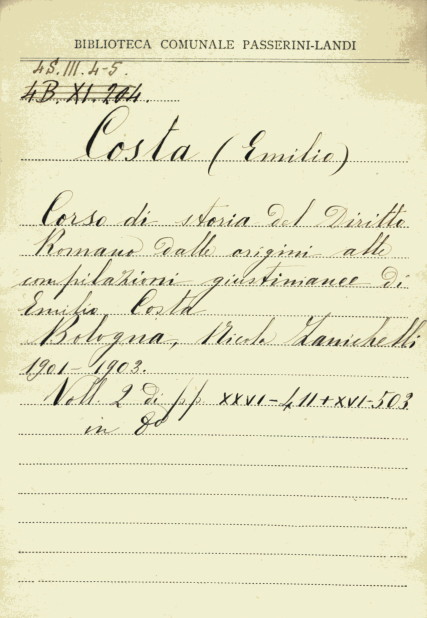 BIBLIOTECA COMUNALE PASSERINI-LANDI
4S. III. 4-5.
4B. XI. 204.
Costa (Emilio)
Corso di storia del Diritto
Romano dalle origini alle
compilazioni giustinianee di
Emilio Costa
Bologna, Nicola Zanichelli
1901-1903.
Voll. 2 di pp XXVI-411+XVI-503
in 8º